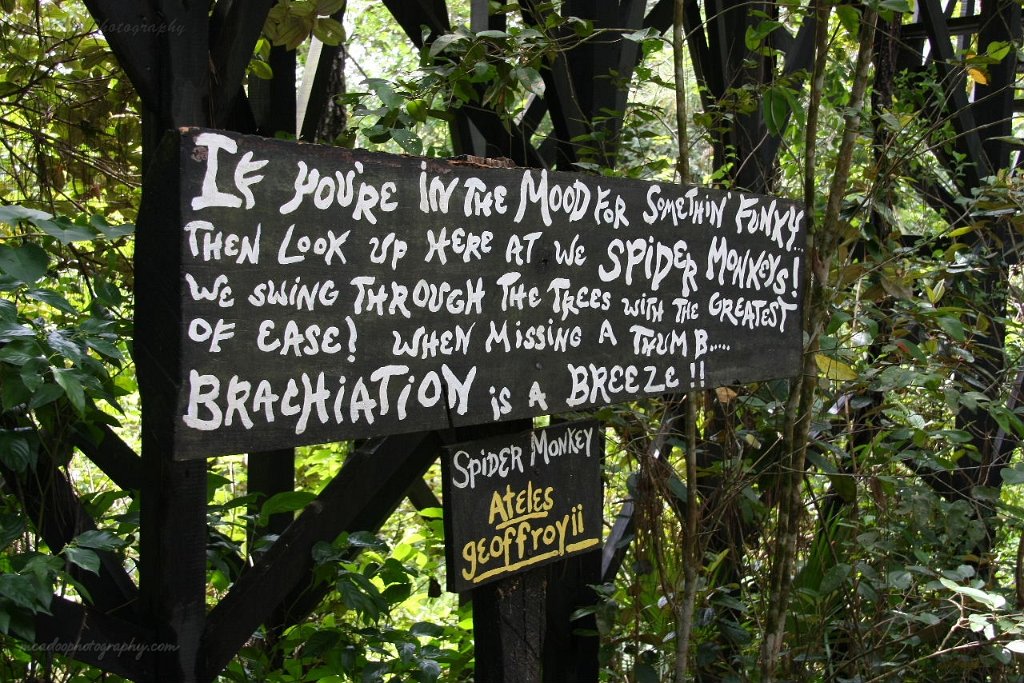 If you're in the mood for somethin' funky...
Then look up here at we spider monkeys!
We swing through the trees with the greatest
of ease! When missing a thumb.....
Brachiation is a breeze!!
Spider Monkey
Ateles
geoffroyii
mcadoophotography.com